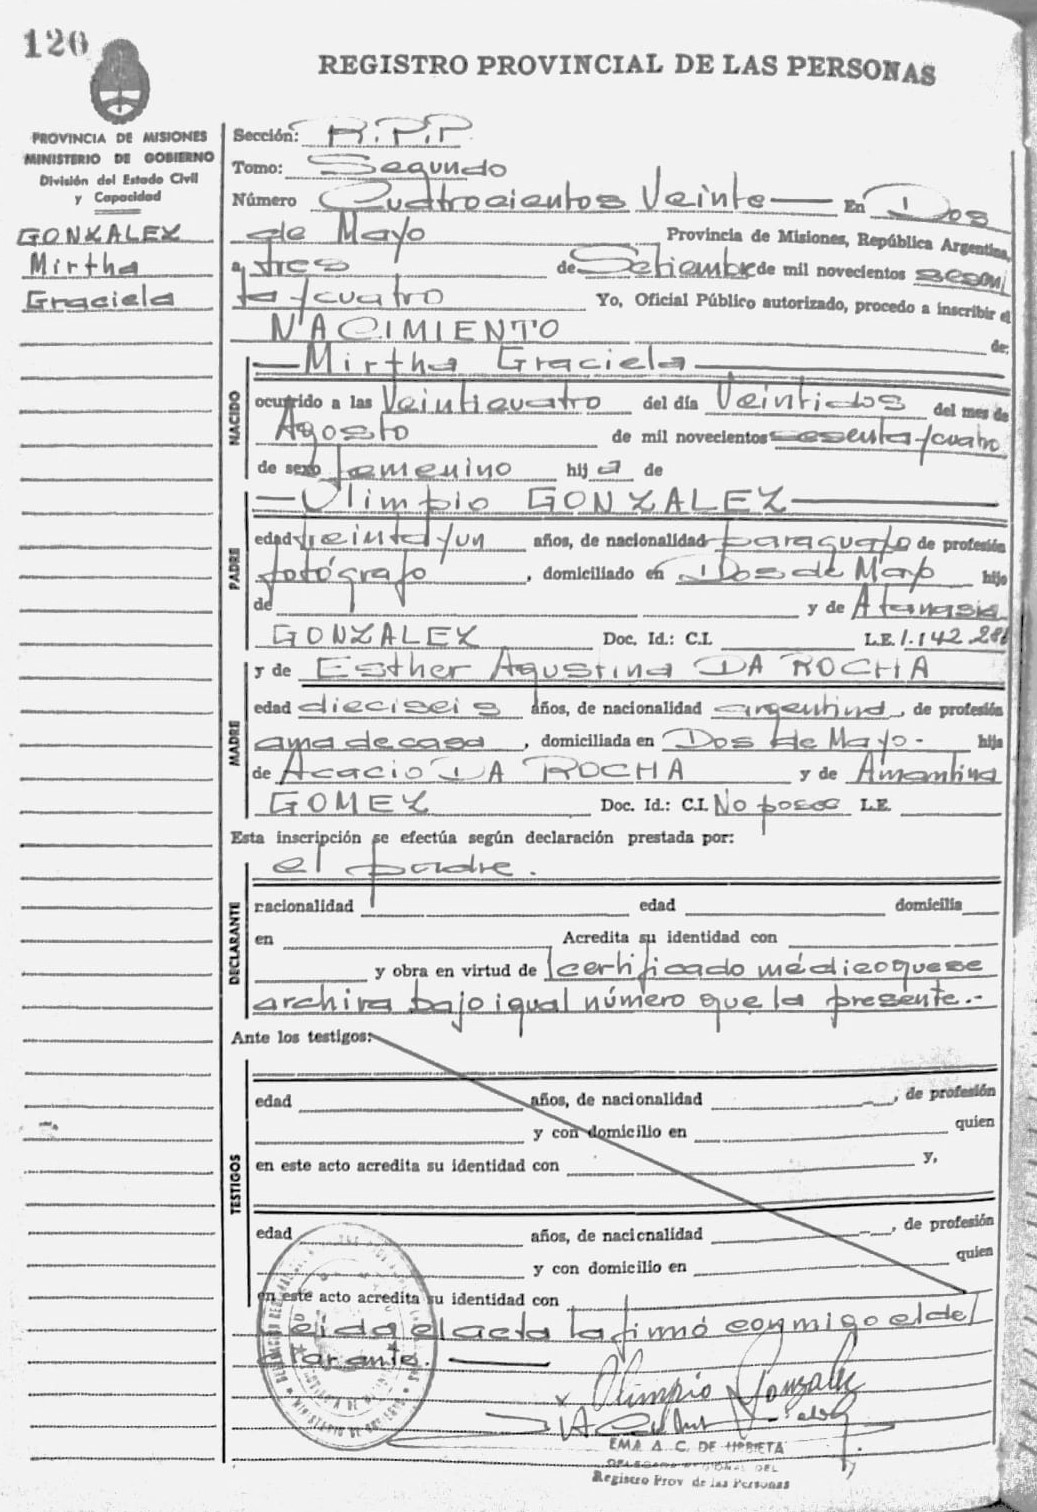 120
REGISTRO PROVINCIAL DE LAS PERSONAS
PROVINCIA DE MISIONES
MINISTERIO DE GOBIERNO
División del Estado Civil
y Capacidad
GONZALEZ
Mirtha
Graciela
Sección: R.P.P
Tomo: Segundo
Número Cuatrocientos Veinte En Dos
de Mayo Provincia de Misiones, República Argentina,
a tres de Setiembre de mil novecientos sesen
ta y cuatro Yo, Oficial Público autorizado, procedo a inscribir el
NACIMIENTO de:
NACIDO
Mirtha Graciela
ocurrido a las Veinticuatro del día Veintidos del mes de
Agosto de mil novecientos sesenta y cuatro
de sexo femenino hij a de
PADRE
Olimpio GONZALEZ
edad treinta y un años, de nacionalidad paraguayo de profesión
fotógrafo, domiciliado en Dos de Mayo hijo
de y de Atanasia
GONZALEZ Doc. Id.: C.I. L.E. 1.142.286
MADRE
y de Esther Agustina DA ROCHA
edad dieciseis años, de nacionalidad argentina, de profesión
ama de casa, domiciliada en Dos de Mayo.- hija
de Acacio DA ROCHA y de Amantina
GOMEZ Doc. Id.: C.I. No posee L.E.
Esta inscripción se efectúa según declaración prestada por:
DECLARANTE
el padre.
nacionalidad edad domicilia
en Acredita su identidad con
y obra en virtud de certificado médico que se
archiva bajo igual número que la presente.-
Ante los testigos:
TESTIGOS
edad años, de nacionalidad , de profesión
y con domicilio en quien
en este acto acredita su identidad con y,
edad años, de nacionalidad , de profesión
y con domicilio en quien
en este acto acredita su identidad con
Leida el acta la firmó conmigo el del
clarante.
x Olimpio Gonzalez
EMA A. C. DE URRIETA
DEL
Registro Prov de las Personas